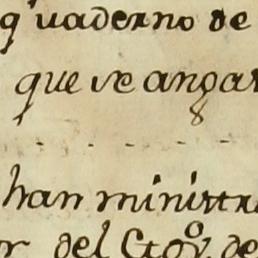 quaderno de
que se angar
han ministra
r del Ctoꝛ de